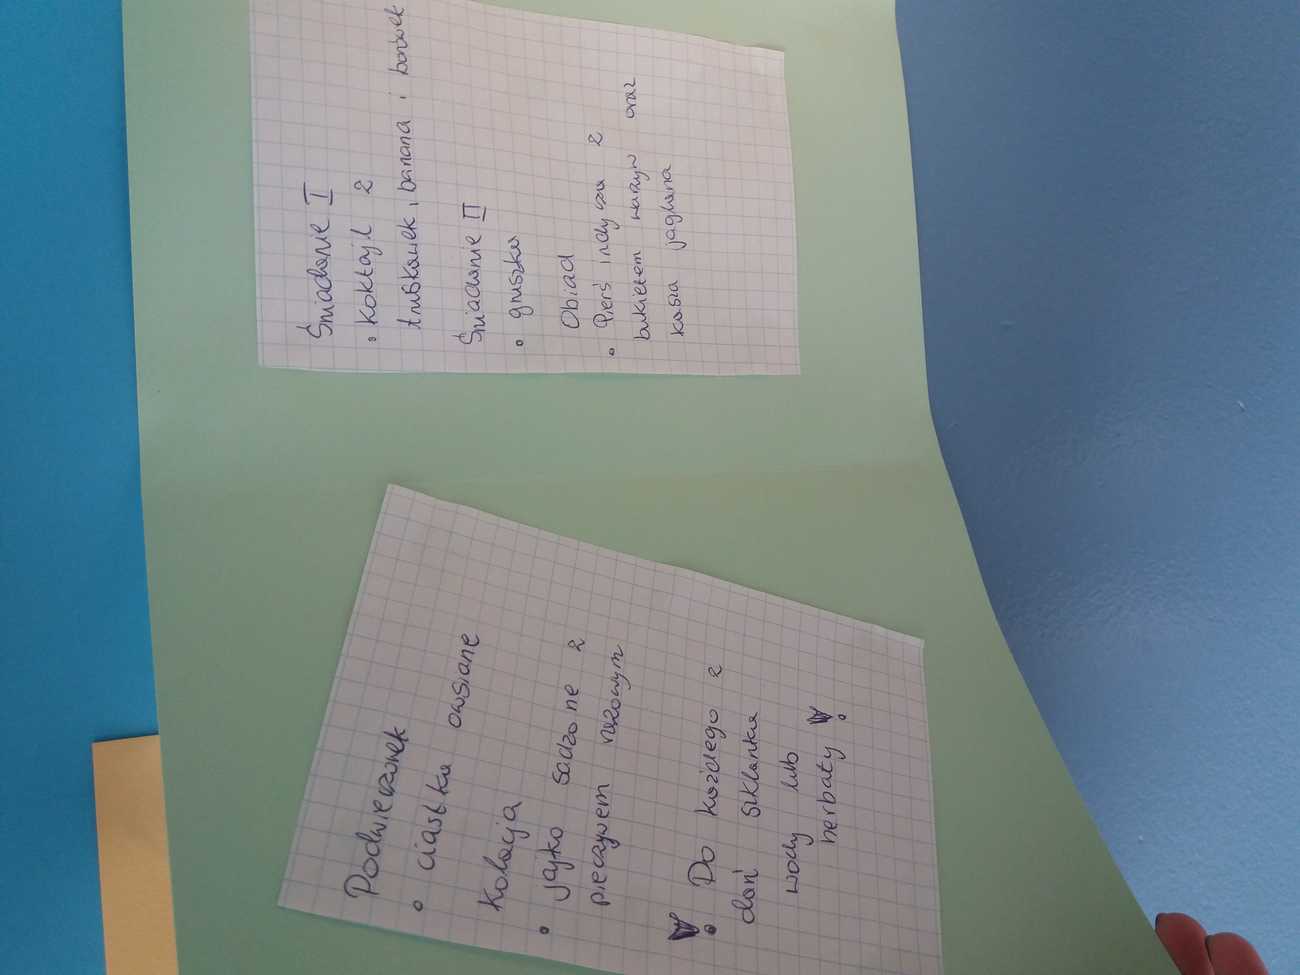 Śniadanie I
• Koktajl z
truskawek, banana i borówek
Śniadanie II
• gruszka
Obiad
• Pierś indycza z
bukietem warzyw oraz
kasza jaglana
Podwieczorek
• ciastka owsiane
Kolacja
• jajko sadzone z
pieczywem razowym
! Do każdego z
dań szklanka
wody lub
herbaty !